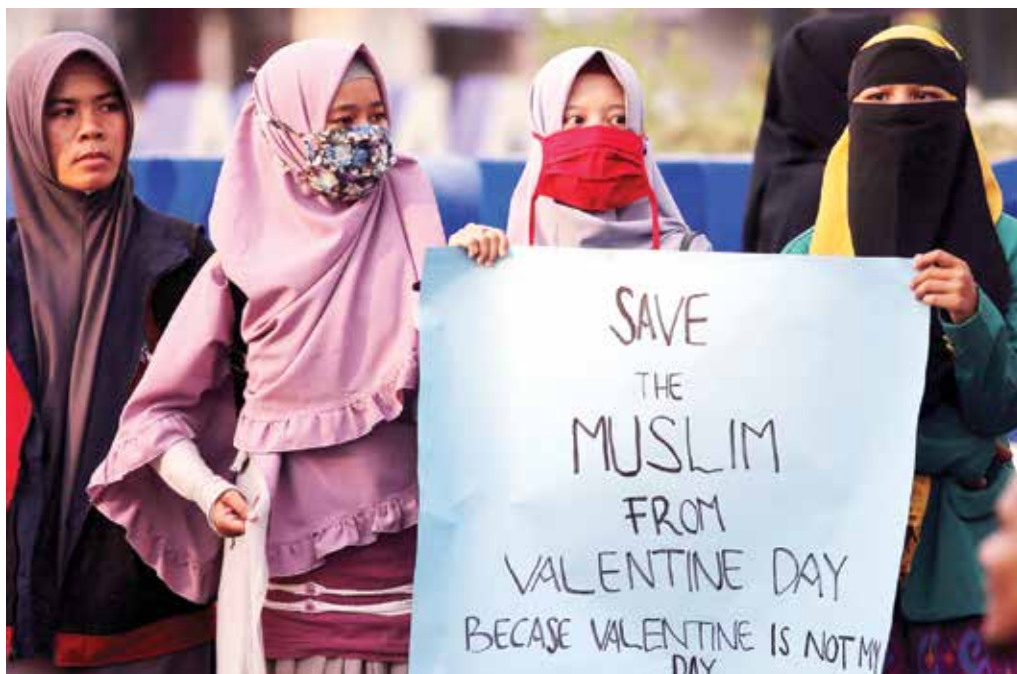 SAVE
THE
MUSLIM
FROM
VALENTINE DAY
BECASE VALENTINE IS NOT MY
DAY